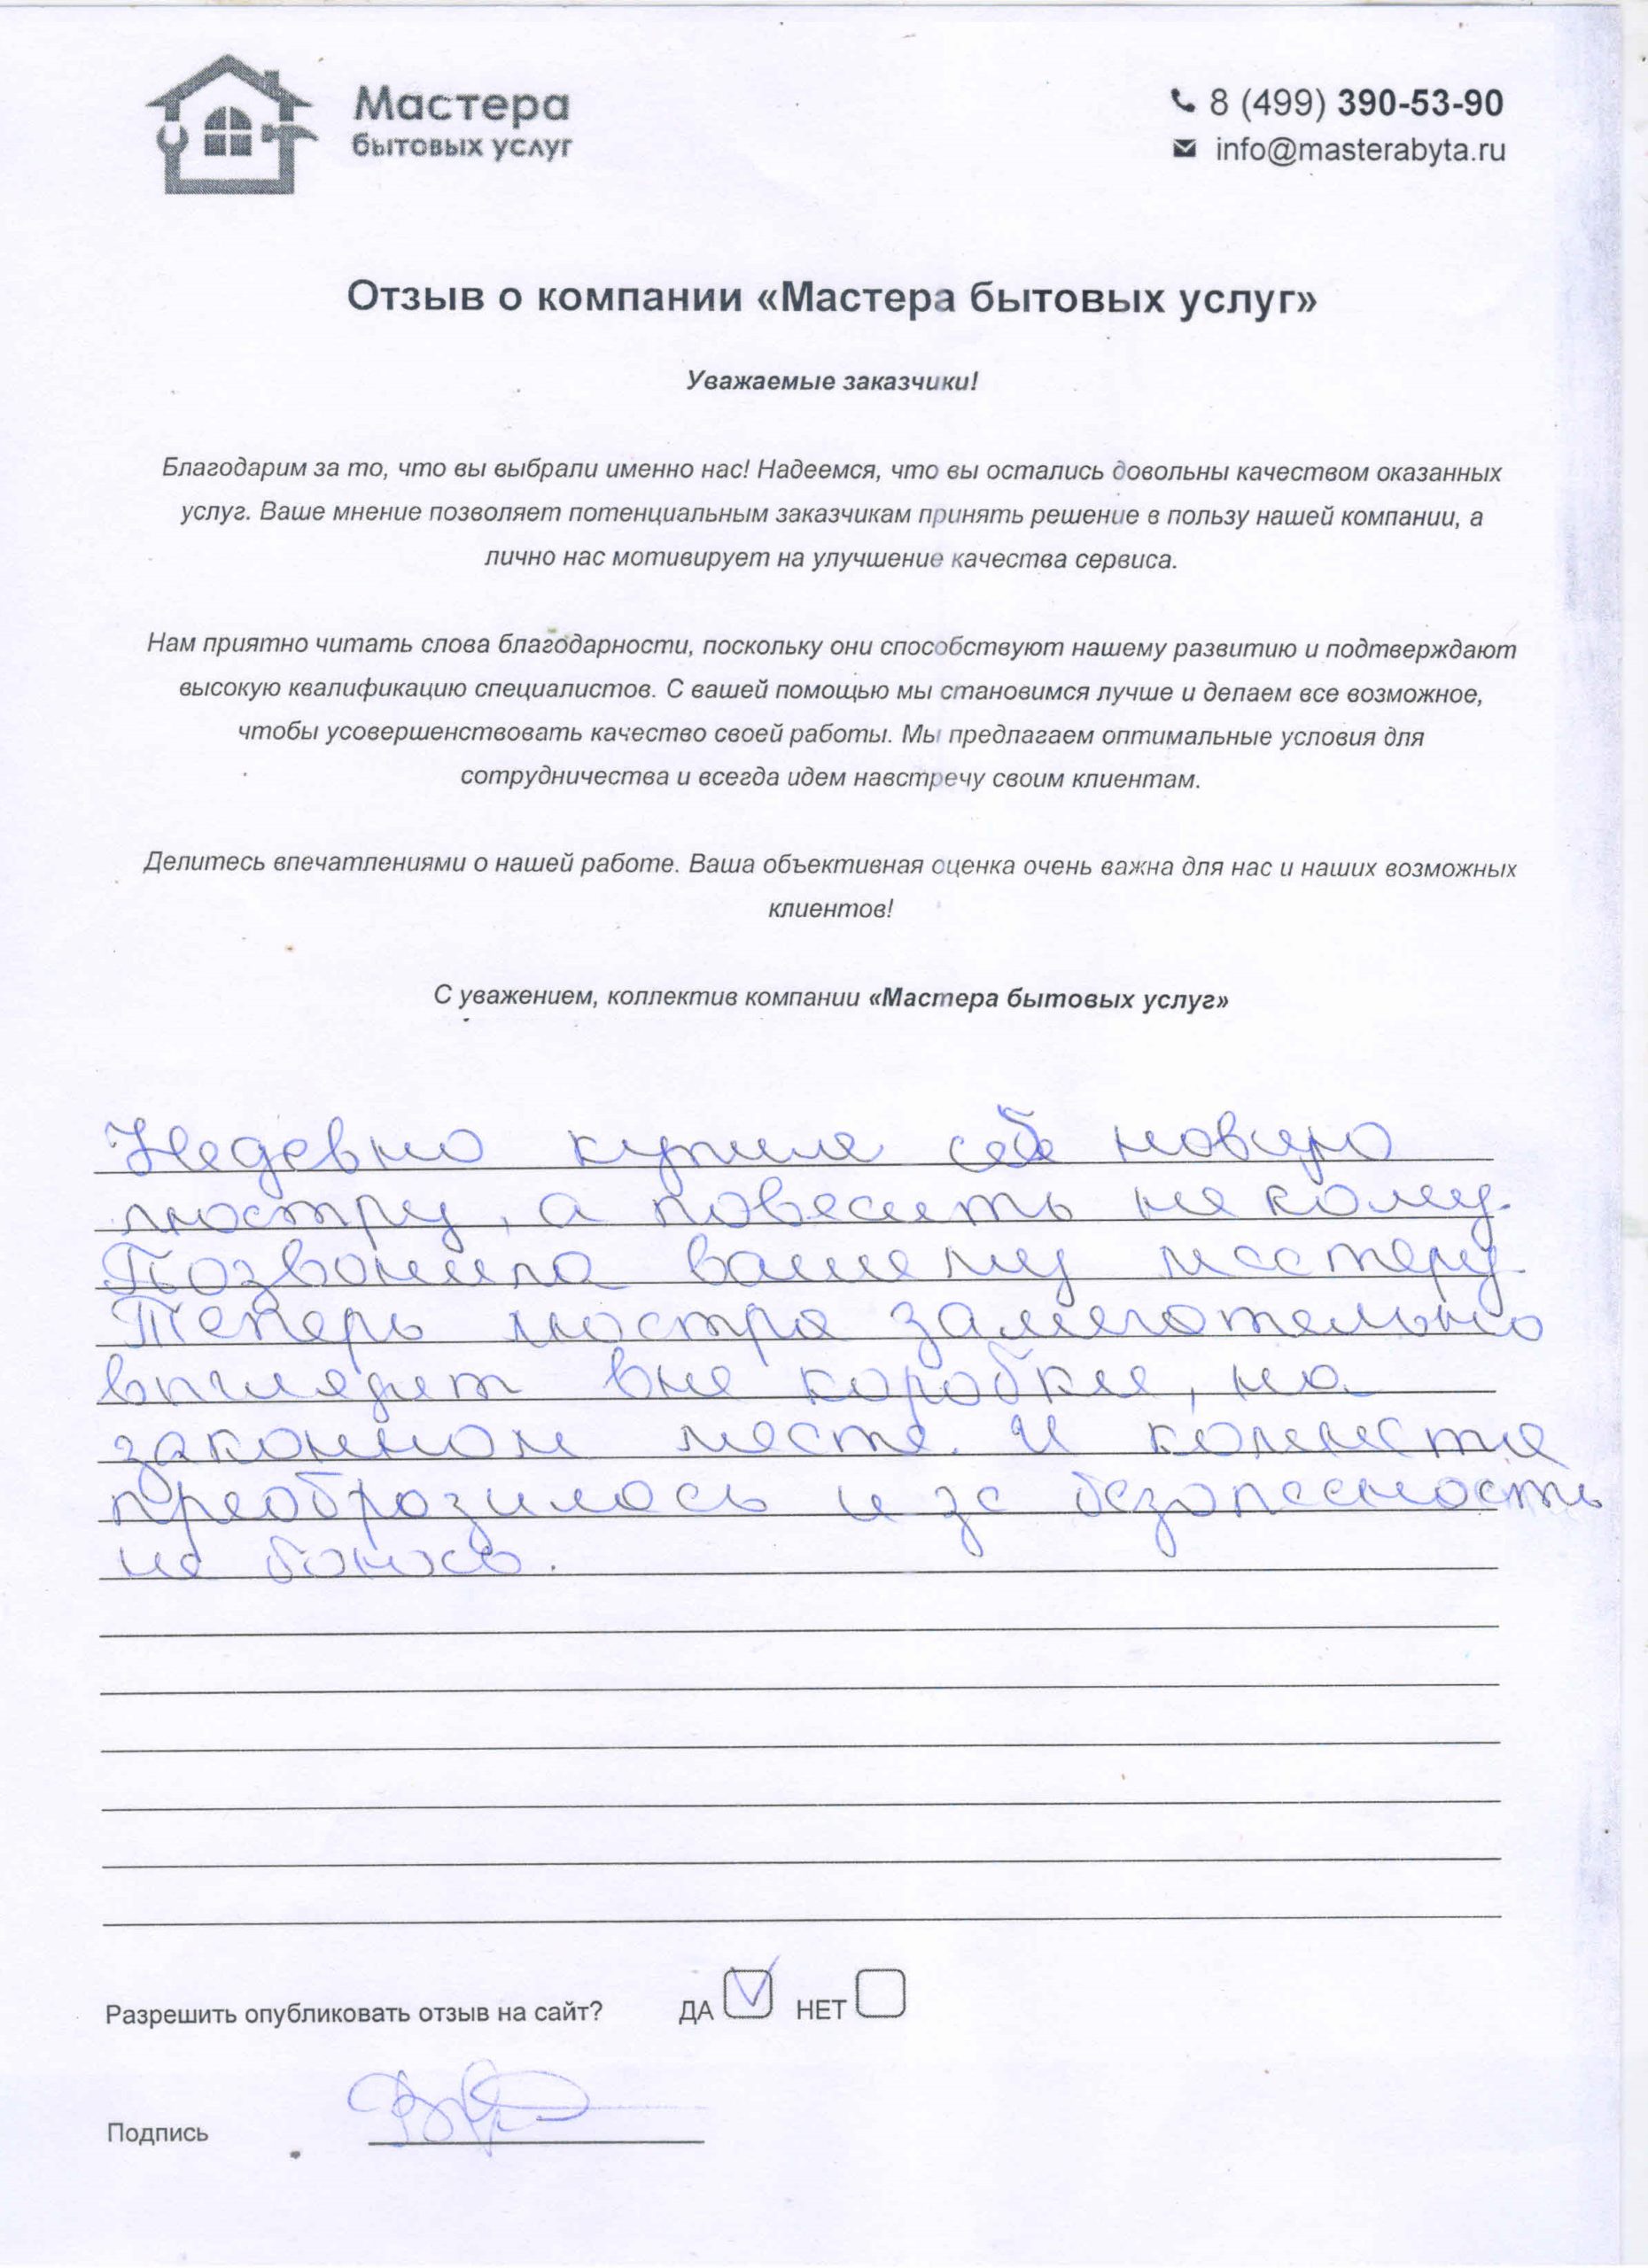 Мастера
бытовых услуг
8 (499) 390-53-90
info@masterabyta.ru
Отзыв о компании «Мастера бытовых услуг»
Уважаемые заказчики!
Благодарим за то, что вы выбрали именно нас! Надеемся, что вы остались довольны качеством оказанных
услуг. Ваше мнение позволяет потенциальным заказчикам принять решение в пользу нашей компании, а
лично нас мотивирует на улучшение качества сервиса.
Нам приятно читать слова благодарности, поскольку они способствуют нашему развитию и подтверждают
высокую квалификацию специалистов. С вашей помощью мы становимся лучше и делаем все возможное,
чтобы усовершенствовать качество своей работы. Мы предлагаем оптимальные условия для
сотрудничества и всегда идем навстречу своим клиентам.
Делитесь впечатлениями о нашей работе. Ваша объективная оценка очень важна для нас и наших возможных
клиентов!
С уважением, коллектив компании «Мастера бытовых услуг»
Недавно купила себе новую
люстру, а повесить не кому.
Позвонила вашему мастеру.
Теперь люстра замечательно
выглядит вне коробки, на
законном месте. И комната
преобразилась и за безопасность
не боюсь.
Разрешить опубликовать отзыв на сайт? ДА НЕТ
Подпись